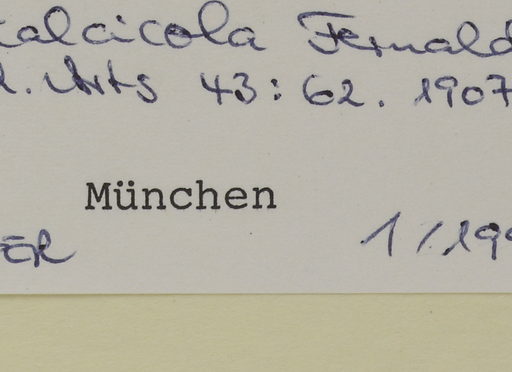 calcicola Fernald
. Arts 43:62. 1907
München
ER 1/199